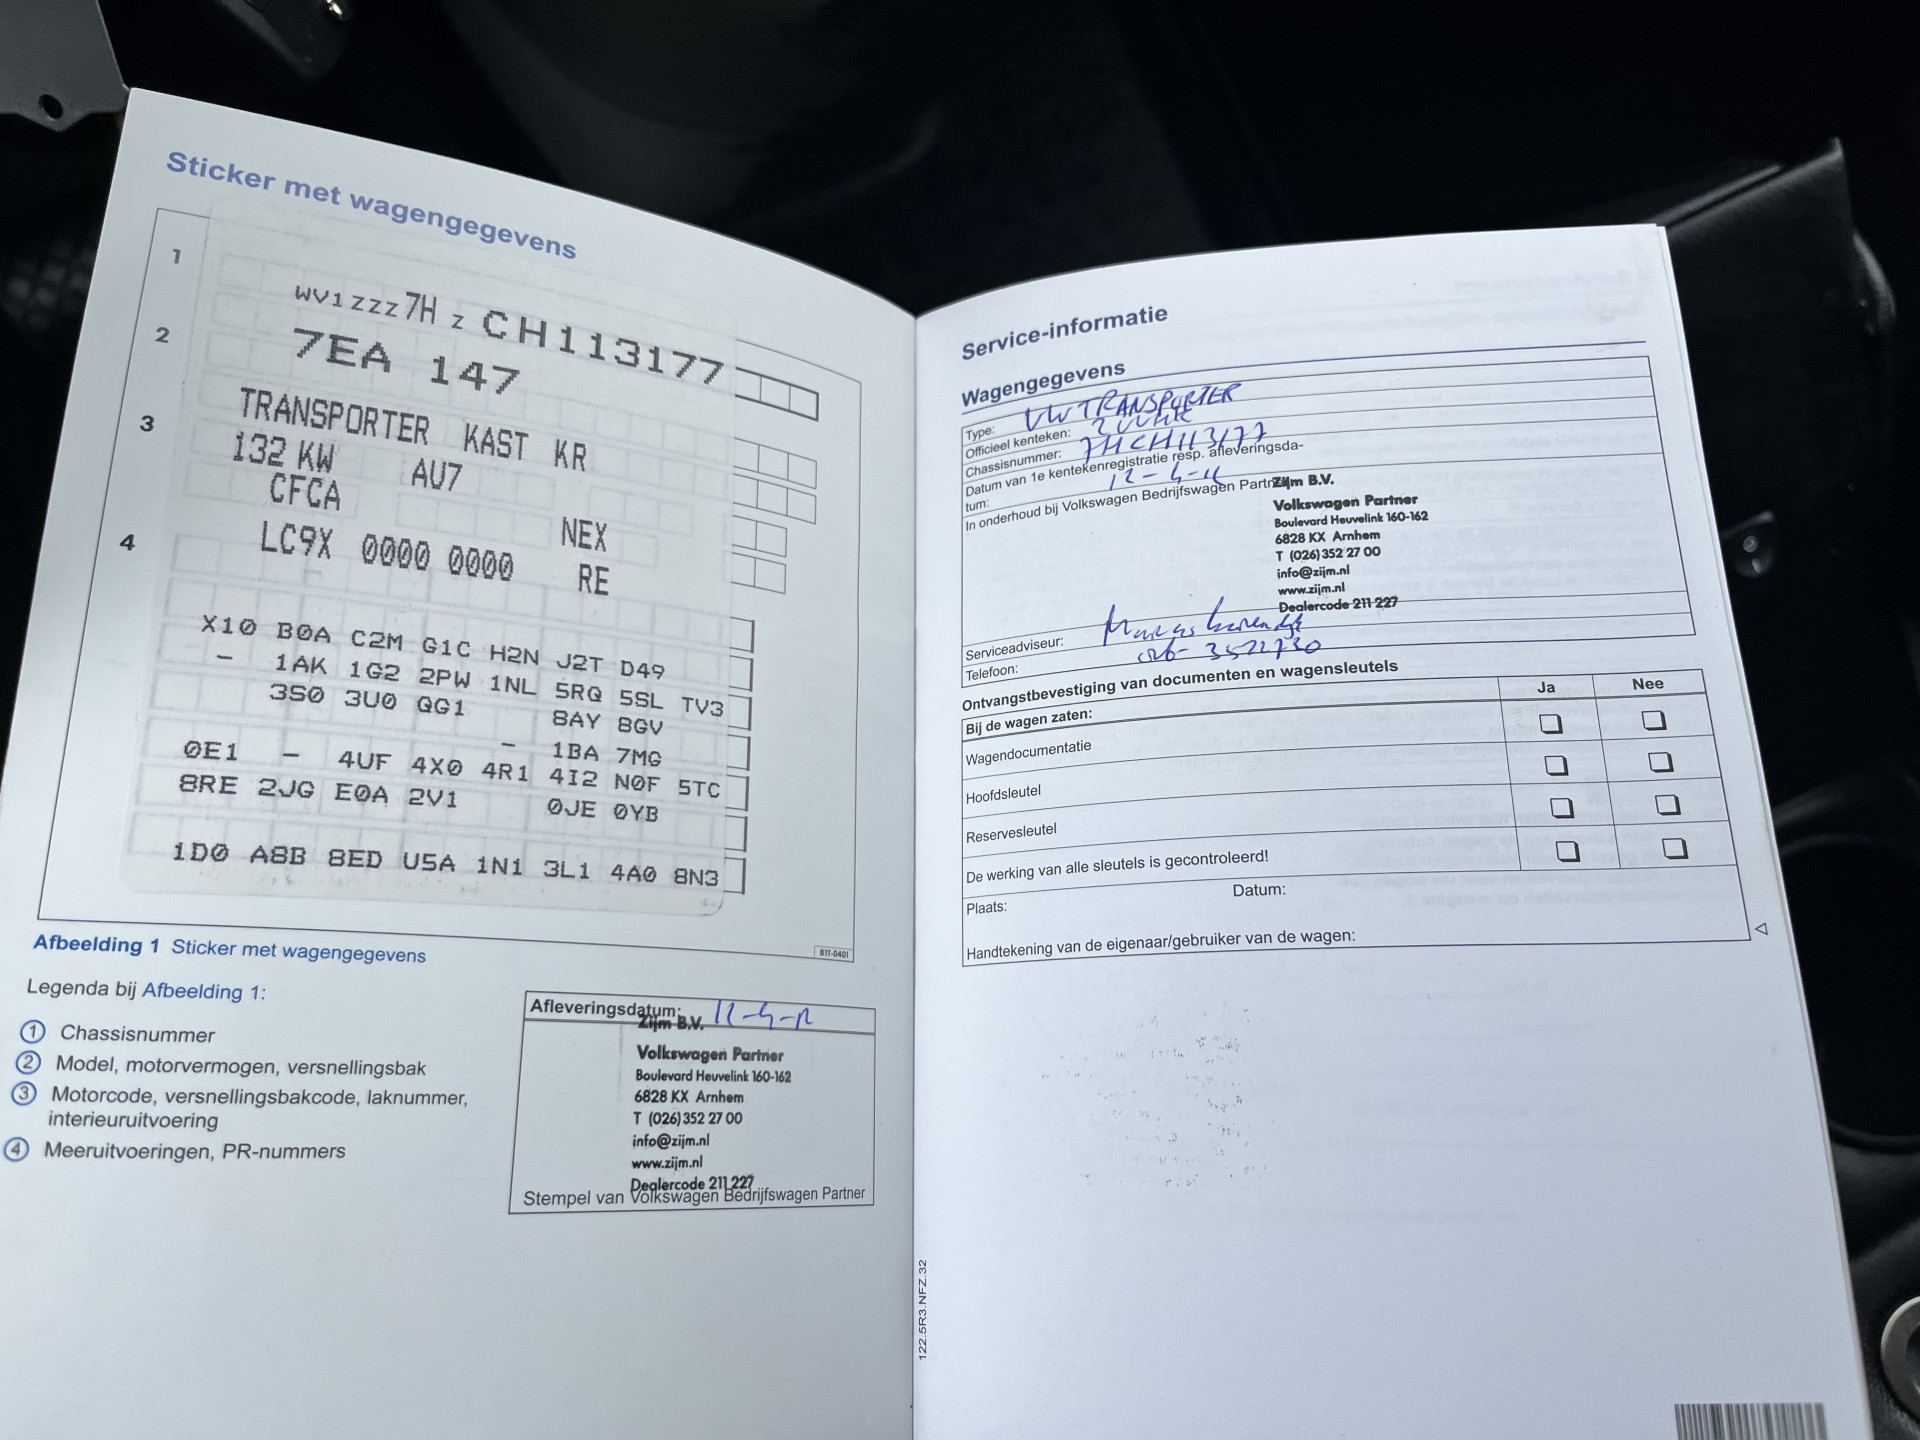 Sticker met wagengegevens
1
WV1ZZZ7H Z CH113177
2
7EA 147
3
TRANSPORTER KAST KR
132 KW AU7
CFCA NEX
4
LC9X 0000 0000 RE
X10 B0A C2M G1C H2N J2T D49
- 1AK 1G2 2PW 1NL 5RQ 5SL TV3
3S0 3U0 QG1 8AY 8GV
- 1BA 7MG
0E1 - 4UF 4X0 4R1 4I2 N0F 5TC
8RE 2JG E0A 2V1 0JE 0YB
1D0 A8B 8ED U5A 1N1 3L1 4A0 8N3
B1T-0401
Afbeelding 1 Sticker met wagengegevens
Legenda bij Afbeelding 1:
1 Chassisnummer
2 Model, motorvermogen, versnellingsbak
3 Motorcode, versnellingsbakcode, laknummer,
interieuruitvoering
4 Meeruitvoeringen, PR-nummers
Afleveringsdatum:
Zijm B.V.
Volkswagen Partner
Boulevard Heuvelink 160-162
6828 KX Arnhem
T (026) 352 27 00
info@zijm.nl
www.zijm.nl
Dealercode 211 227
Stempel van Volkswagen Bedrijfswagen Partner
Service-informatie
Wagengegevens
Type: VW TRANSPORTER
Officieel kenteken:
Chassisnummer: 7HCH113177
Datum van 1e kentekenregistratie resp. afleveringsda-
tum:
In onderhoud bij Volkswagen Bedrijfswagen Partner:
Zijm B.V.
Volkswagen Partner
Boulevard Heuvelink 160-162
6828 KX Arnhem
T (026) 352 27 00
info@zijm.nl
www.zijm.nl
Dealercode 211 227
Serviceadviseur:
Telefoon: 026- 3522730
Ontvangstbevestiging van documenten en wagensleutels
Bij de wagen zaten: Ja Nee
Wagendocumentatie
Hoofdsleutel
Reservesleutel
De werking van alle sleutels is gecontroleerd!
Plaats: Datum:
Handtekening van de eigenaar/gebruiker van de wagen:
122.5R3.NFZ.32